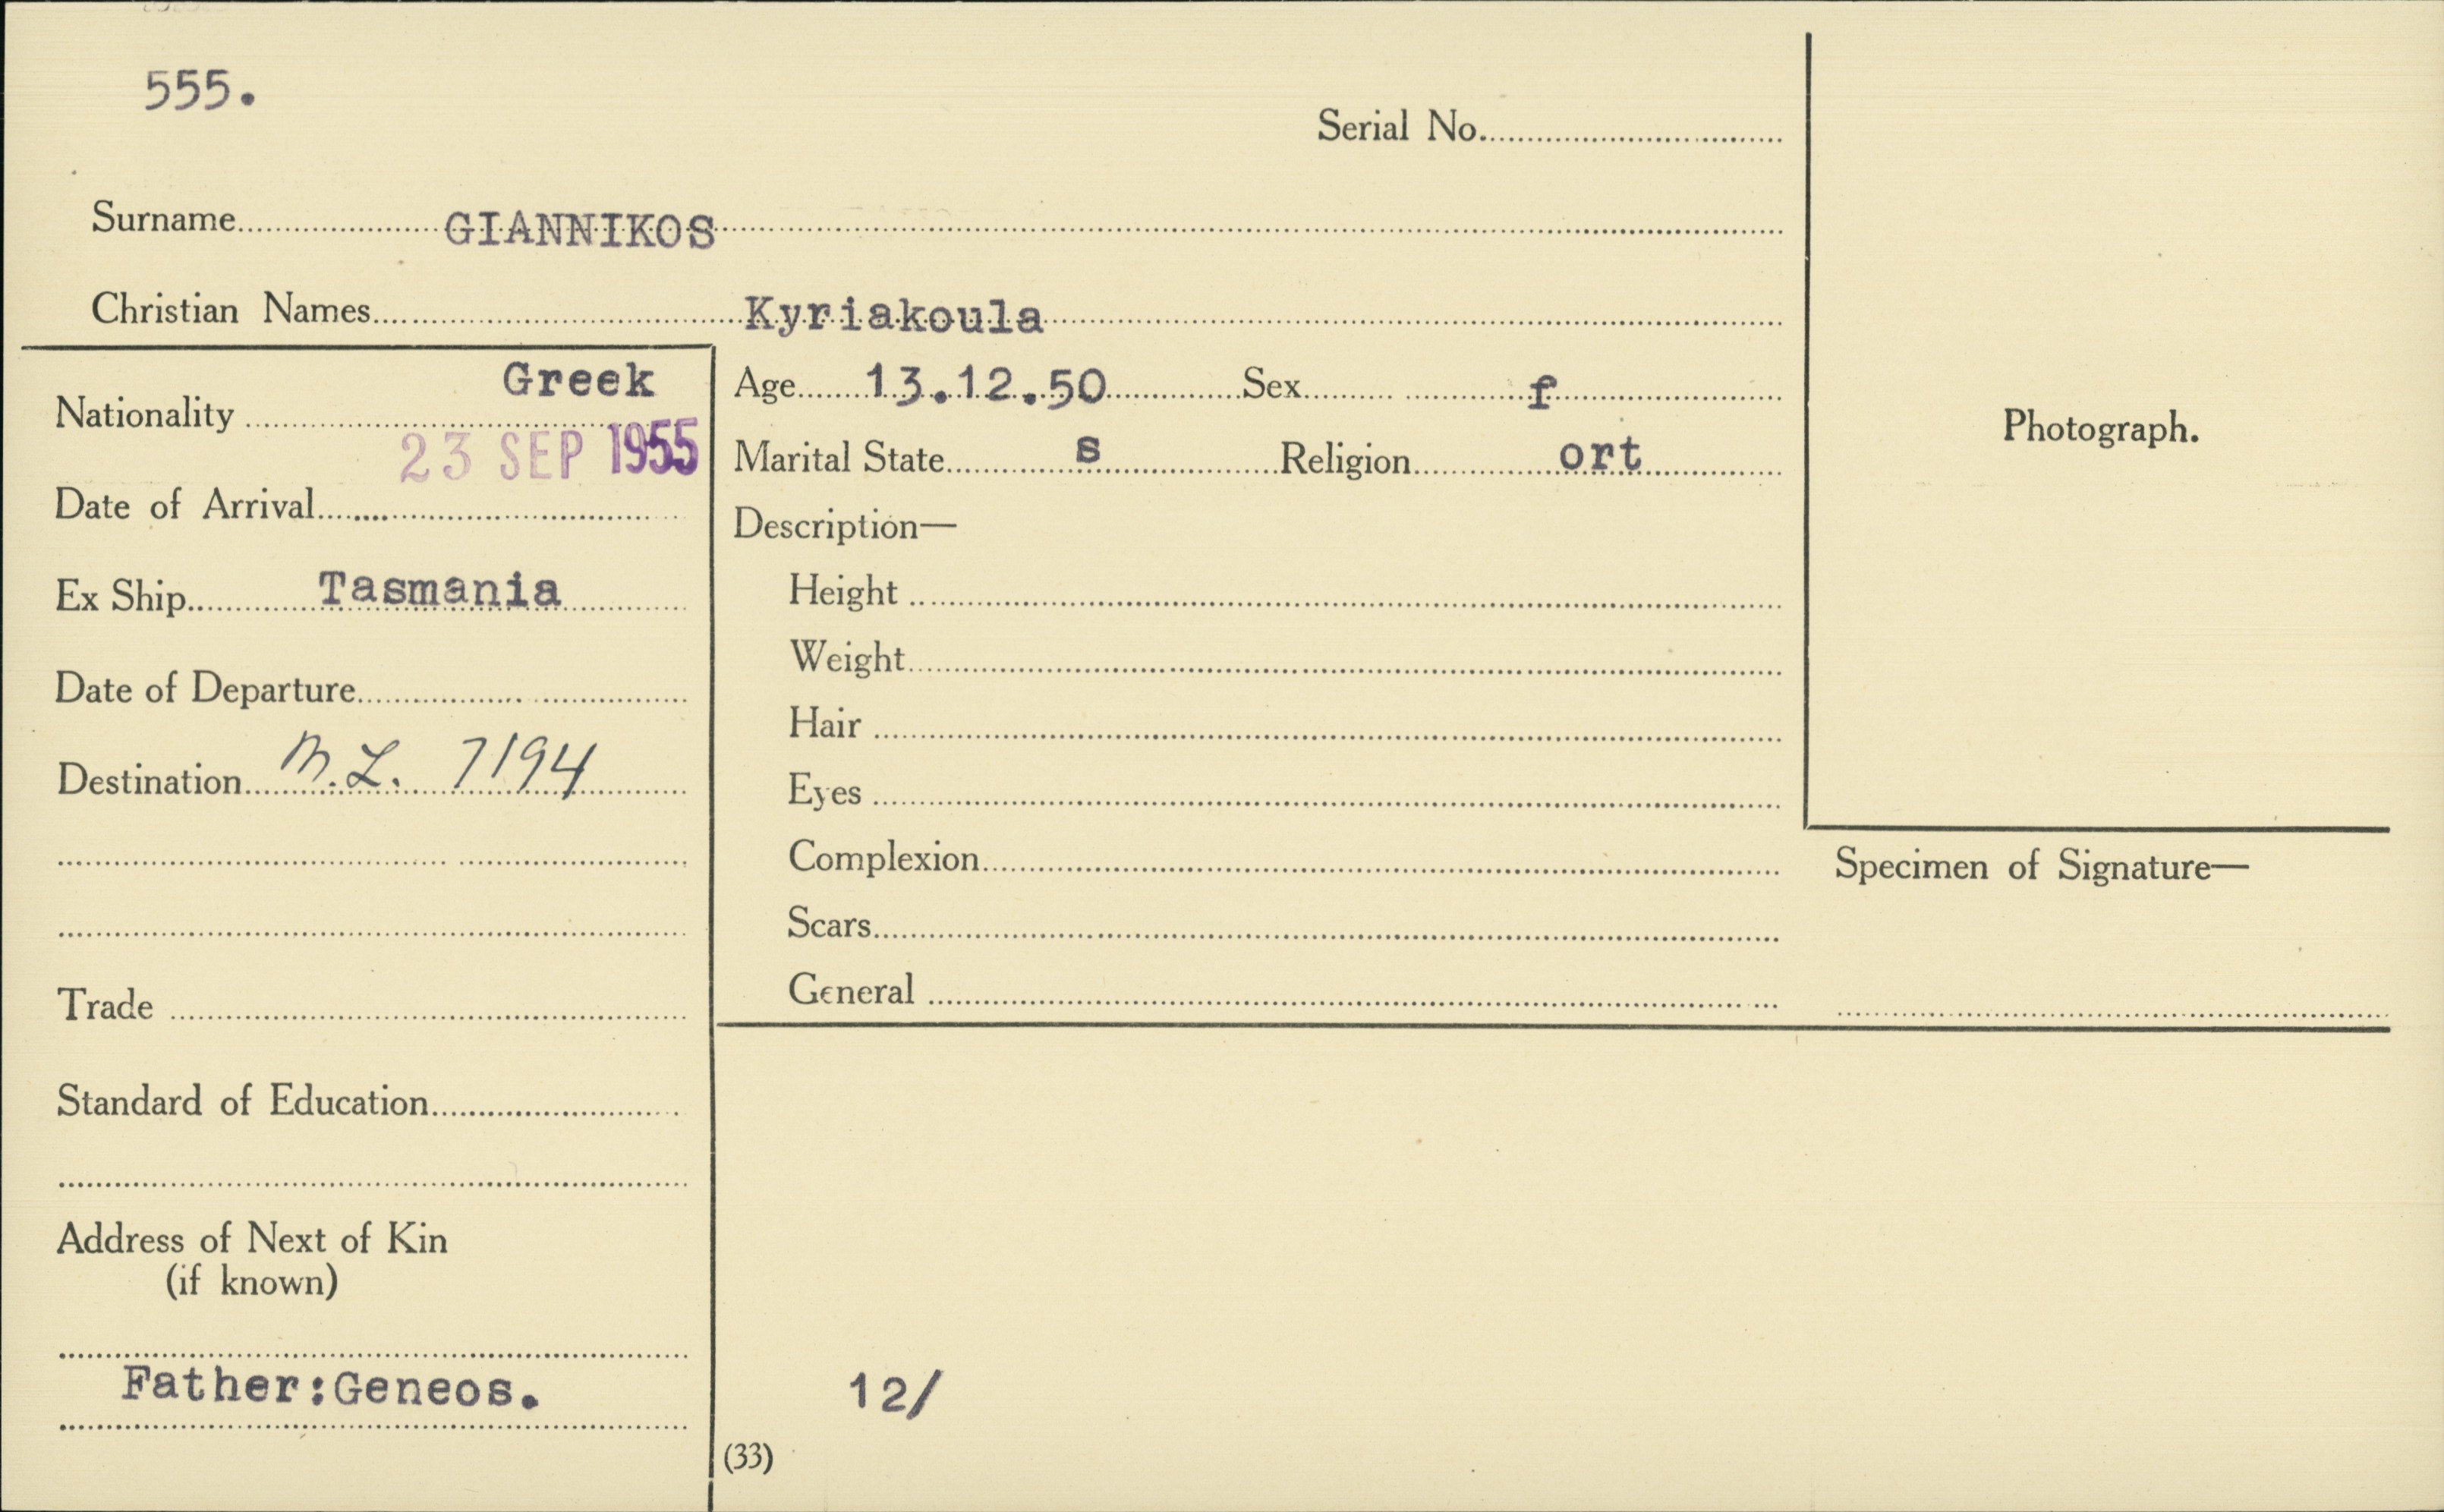 555.
Serial No.
Surname GIANNIKOS
Christian Names Kyriakoula
Nationality Greek
Date of Arrival 23 SEP 1955
Ex Ship Tasmania
Date of Departure
Destination M.L. 7194
Trade
Standard of Education
Address of Next of Kin
(if known)
Father:Geneos.
Age 13.12.50 Sex f
Marital State s Religion ort
Description—
Height
Weight
Hair
Eyes
Complexion
Scars
General
12/
(33)
Photograph.
Specimen of Signature—